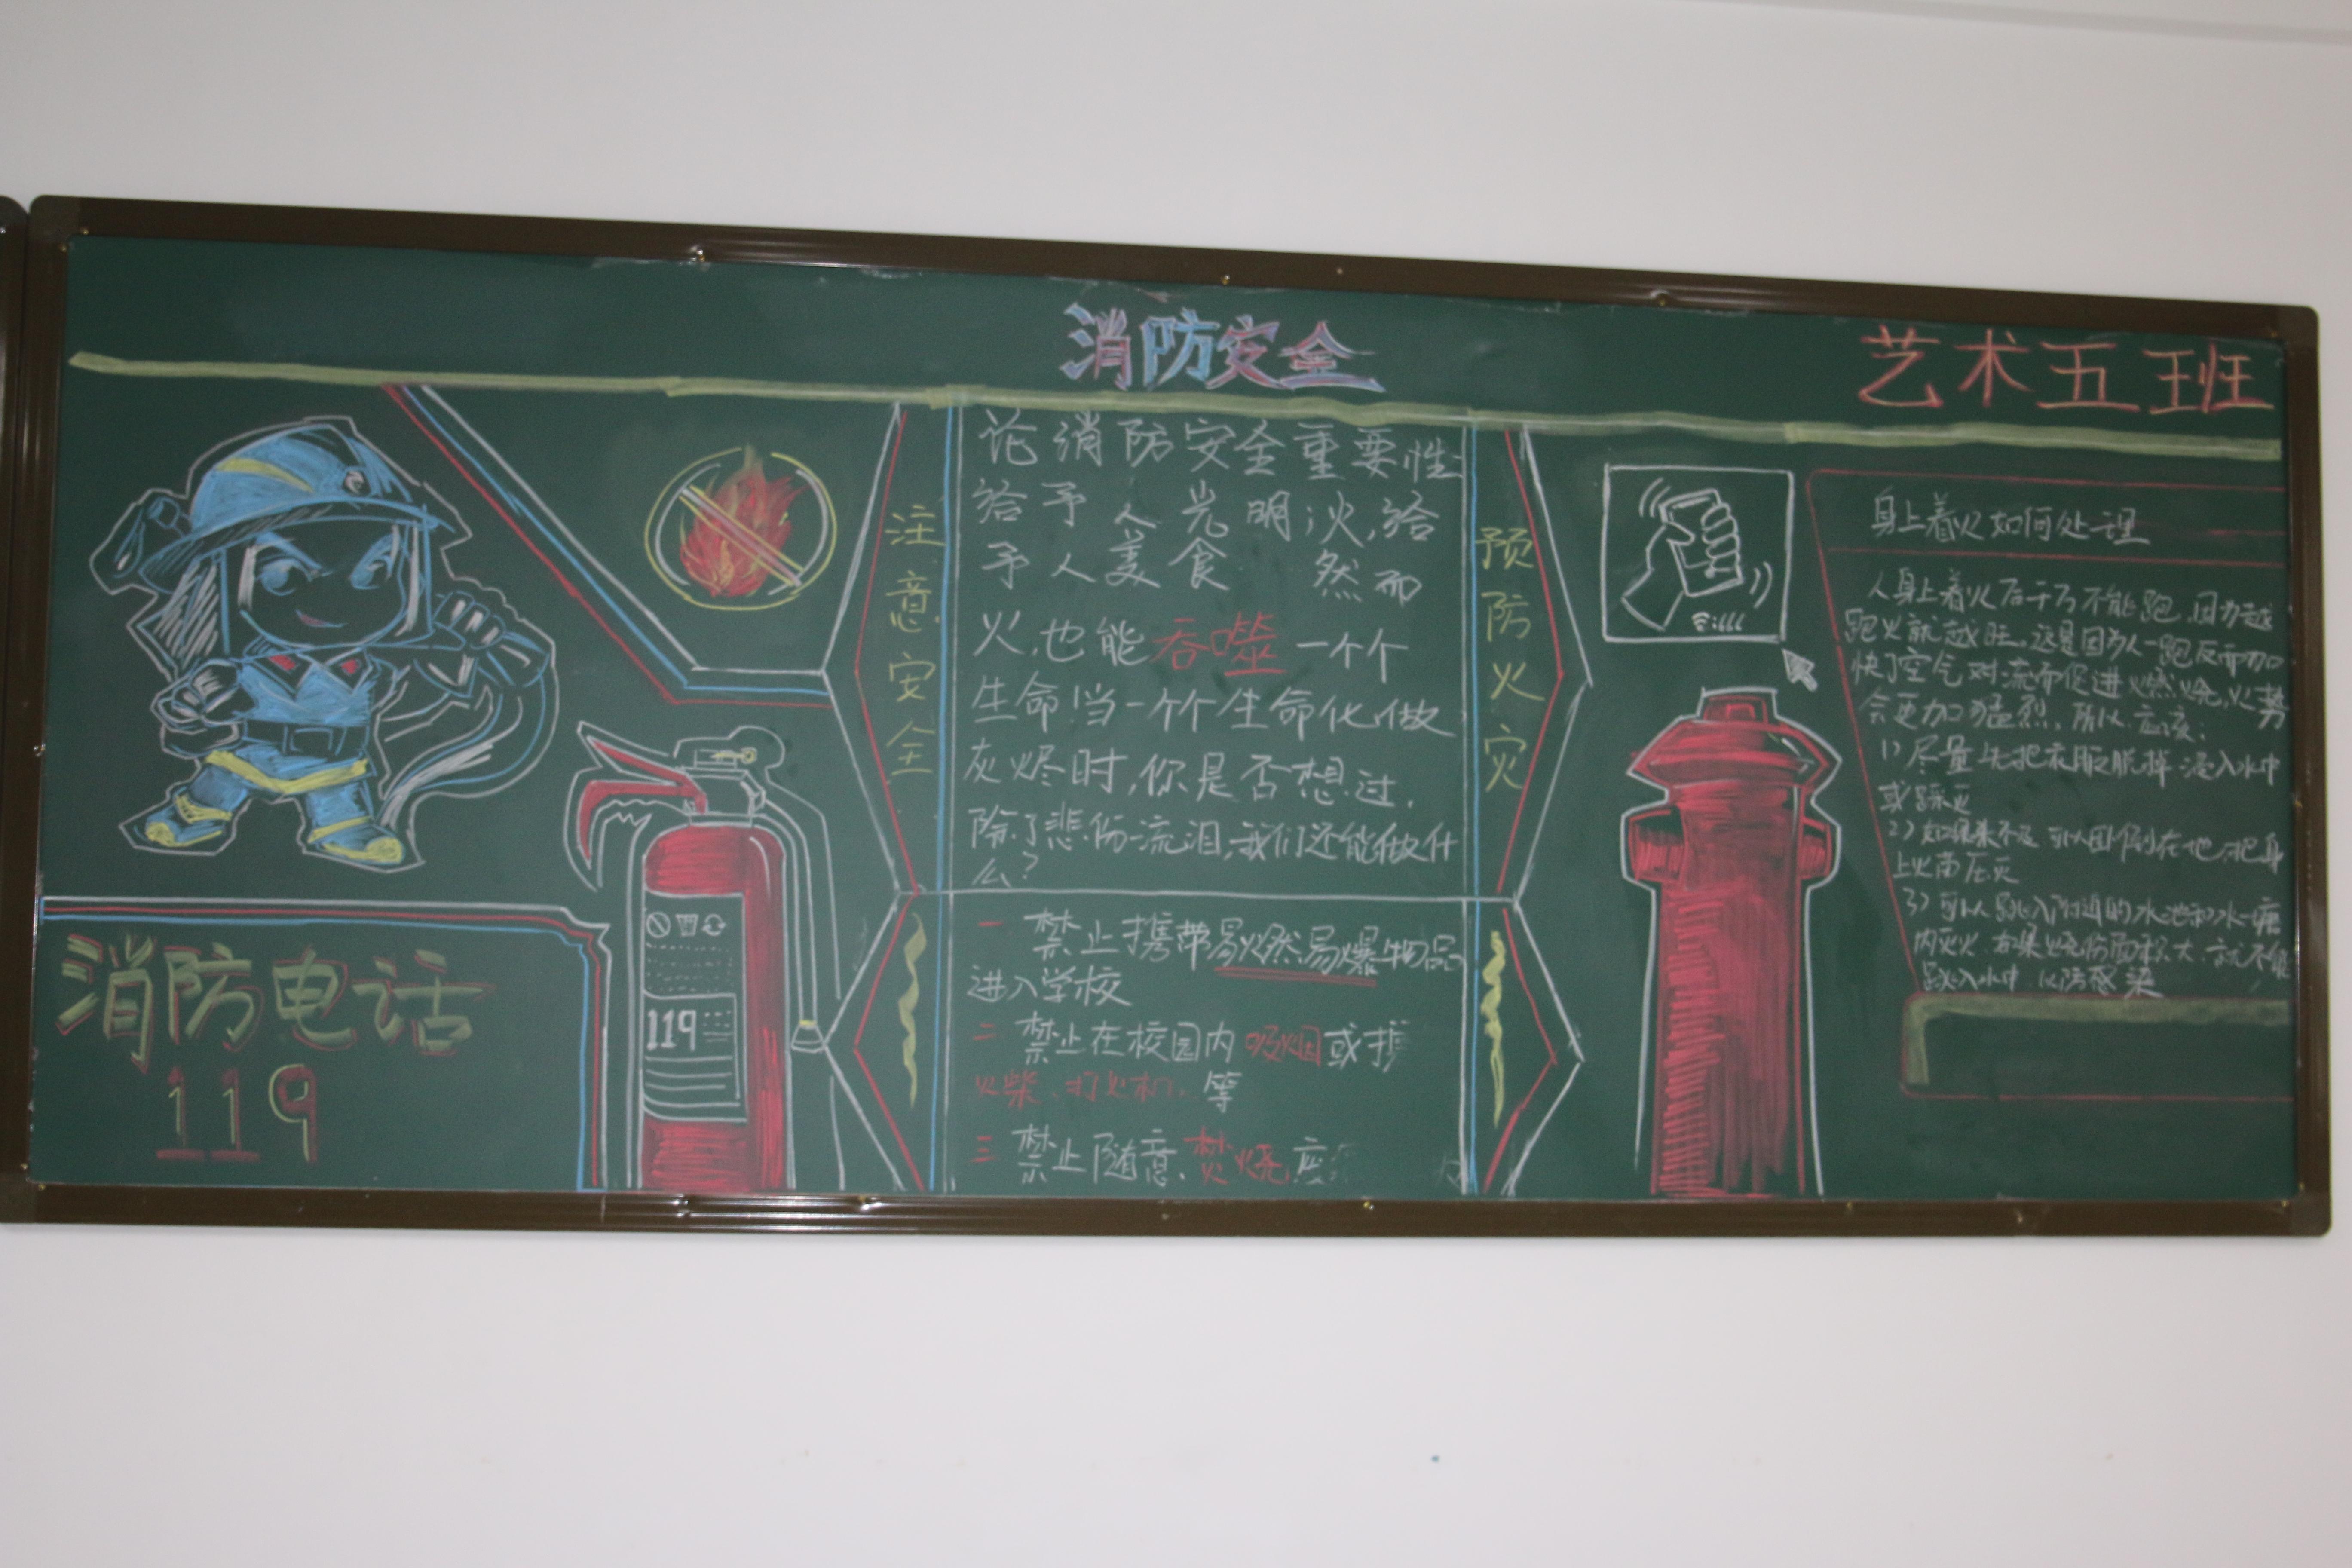 消防安全
艺术五班
消防电话
119
119
注意安全
论消防安全重要性
给予人光明火,给
予人美食 然而
火,也能吞噬一个个
生命当一个个生命化做
灰烬时,你是否想过,
除了悲伤流泪,我们还能做什
么?
一 禁止携带易燃易爆物品
进入学校
二 禁止在校园内吸烟或携
火柴、打火机、等
三 禁止随意焚烧
预防火灾
身上着火如何处理
人身上着火后千万不能跑,因为越
跑火就越旺,这是因为人一跑反而加
快了空气对流而促进燃烧,火势
会更加猛烈,所以应该:
1)尽量先把衣服脱掉浸入水中
或踩灭
2)如果来不及可以卧倒在地,把身
上火苗压灭
3)可以跳入附近的水池和水塘
内灭火 如果烧伤面积大 就不能
跳入水中 以防感染